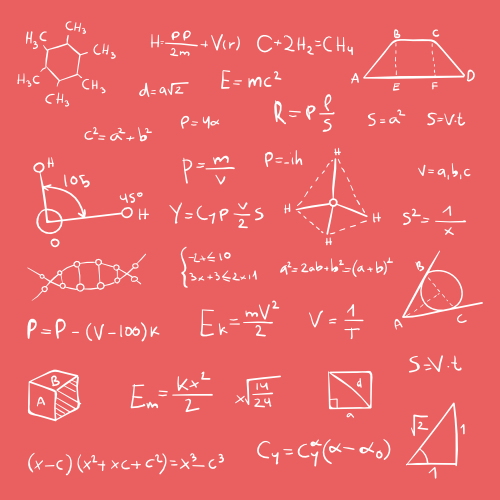 H₃C CH₃
CH₃
H₃C CH₃
CH₃
H=pp/2m+V(r)
C+2H₂=CH₄
B C
A D
E F
d=a√2
E=mc²
R=P ℓ/S
S=a²
S=V·t
c²=a²+b²
P=4α
H
105
45°
H
O
P=m/v
P=-ih
H
H H
H
V=a,b,c
Y=CyP v/2 S
S²=1/x
{-2x≤10
3x+3≤2x+1
a²=2ab+b²=(a+b)²
B
A C
P=P-(V-100)k
Eₖ=mV²/2
V=1/T
S=V·t
B
A
Eₘ=kx²/2
x√14/24
d
a
√2 1
1
(x-c)(x²+xc+c²)=x³-c³
Cy=Cyᵅ(α-α₀)